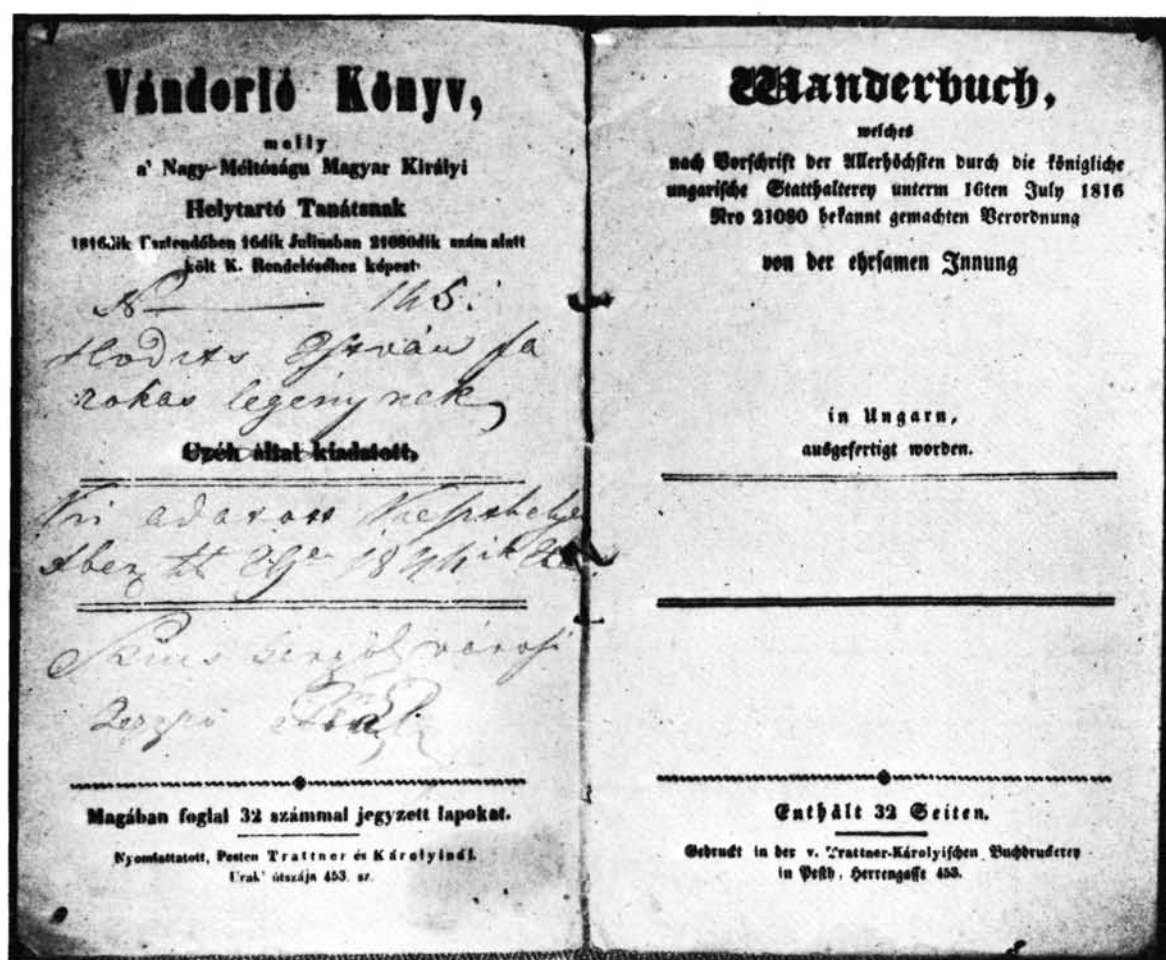 Vándorló Könyv,
melly
a' Nagy-Méltóságu Magyar Királyi
Helytartó Tanátsnak
1816dik Esztendőben 16dik Juliusban 21080dik szám alatt
költ K. Rendeléséhez képest
N 145.
Hodits István fa
rokas legénynek
Czéh által kiadatott,
adatott
1844ik
városi
Magában foglal 32 számmal jegyzett lapokat.
Nyomtattatott, Pesten Trattner és Károlyinál.
Urak' útszája 453. sz.
Wanderbuch,
welches
nach Vorschrift der Allerhöchsten durch die königliche
ungarische Statthalterey unterm 16ten July 1816
Nro 21080 bekannt gemachten Verordnung
von der ehrsamen Innung
in Ungarn,
ausgefertigt worden.
Enthält 32 Seiten.
Gedruckt in der v. Trattner-Károlyischen Buchdruckerey
in Pesth, Herrengasse 453.